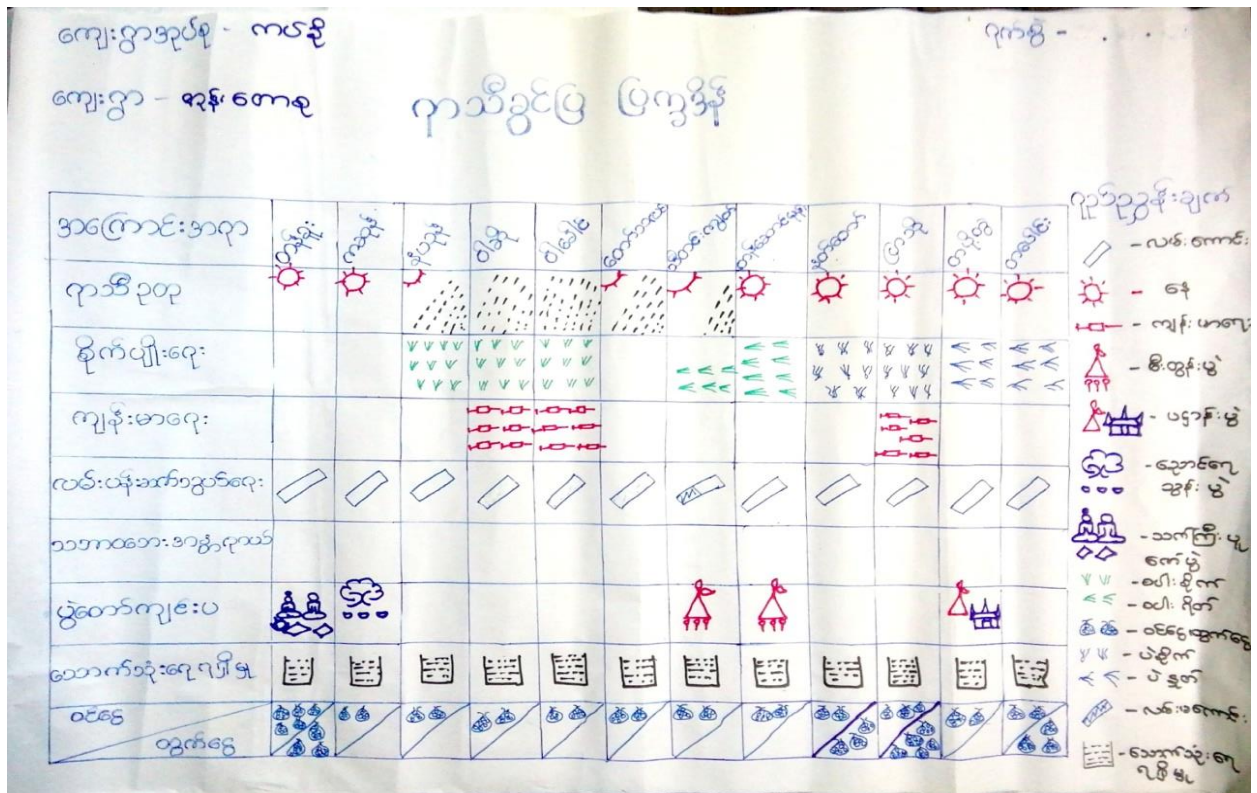 ကျေးရွာအုပ်စု - ကပ်နို
ရက်စွဲ - . .
ကျေးရွာ - ကုန်းတောစု
ရာသီခွင်ပြ ပြက္ခဒိန်
အကြောင်းအရာ
တန်ခူး
ကဆုန်
နယုန်
ဝါဆို
ဝါခေါင်
တော်သလင်း
သီတင်းကျွတ်
တန်ဆောင်မုန်း
နတ်တော်
ပြာသို
တပို့တွဲ
တပေါင်း
ရာသီဥတု
စိုက်ပျိုးရေး
ကျန်းမာရေး
လမ်းပန်းဆက်သွယ်ရေး
သဘာဝဘေးအန္တရာယ်
ပွဲတော်ကျင်းပ
သောက်သုံးရေရရှိမှု
ဝင်ငွေ
ထွက်ငွေ
ရည်ညွှန်းချက်
- လမ်းကောင်း
- နေ
- ကျန်းမာရေး
- မီးထွန်းပွဲ
- ပဌာန်းပွဲ
- ညောင်ရေ
သွန်းပွဲ
- သက်ကြီးပူ
ဇော်ပွဲ
- စပါးစိုက်
- စပါးရိတ်
- ဝင်ငွေ၊ထွက်ငွေ
- ပဲစိုက်
- ပဲနှုတ်
- လမ်းမကောင်း
- သောက်သုံးရေ
ရရှိမှု